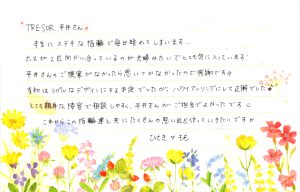 TRESOR 平井さん
本当にステキな指輪で毎日眺めてしまいます…
カタチが2回 合っているのが 夫婦みたいでとても気に入っています
平井さんのご提案がなかったら思いつかなかったので感謝です
当初はシンプルなデザインにする予定でしたが、ハワイアンリングにして正解でした
とても親身な接客で相談しやすく、平井さんがご担当でよかったです
これからこの指輪達と共にたくさんの思い出を作っていきたいです